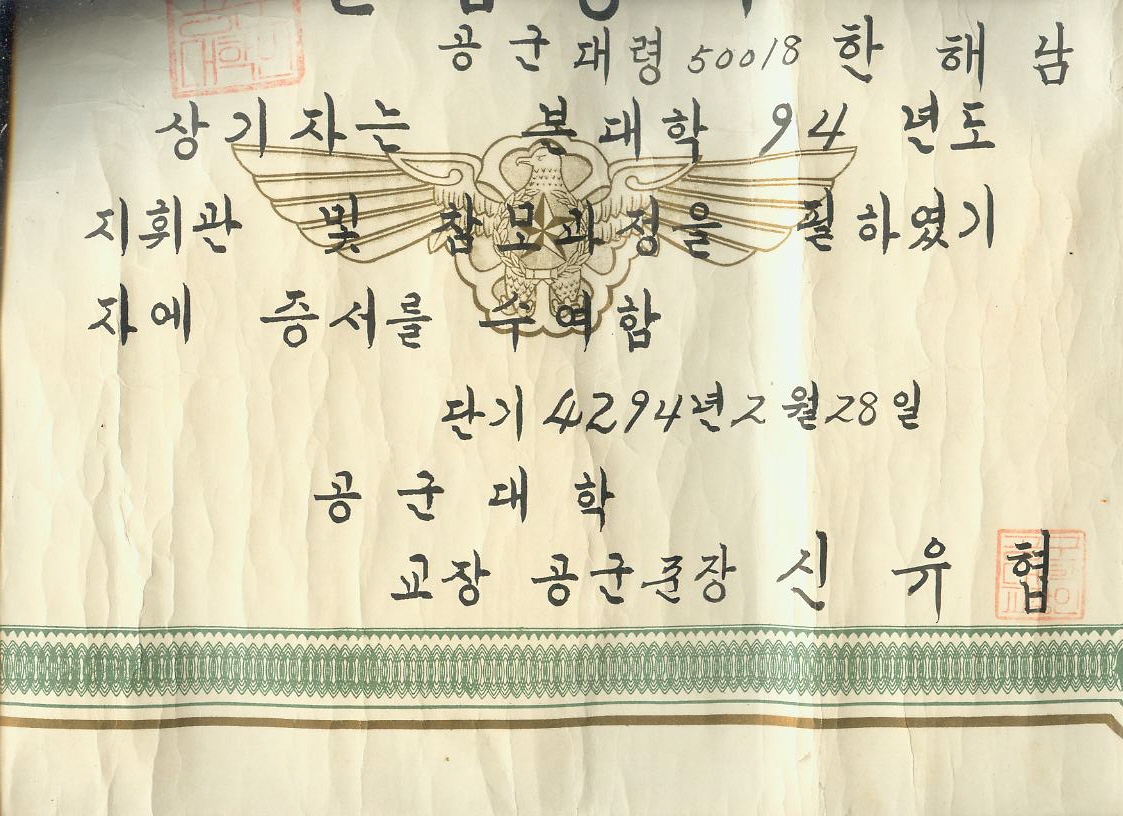 공군대령 50018 한해남
상기자는 본대학 94 년도
지휘관 및 참모과정을 필하였기
자에 증서를 수여함
단기 4294년 2월 28일
공군대학
교장 공군준장 신유협